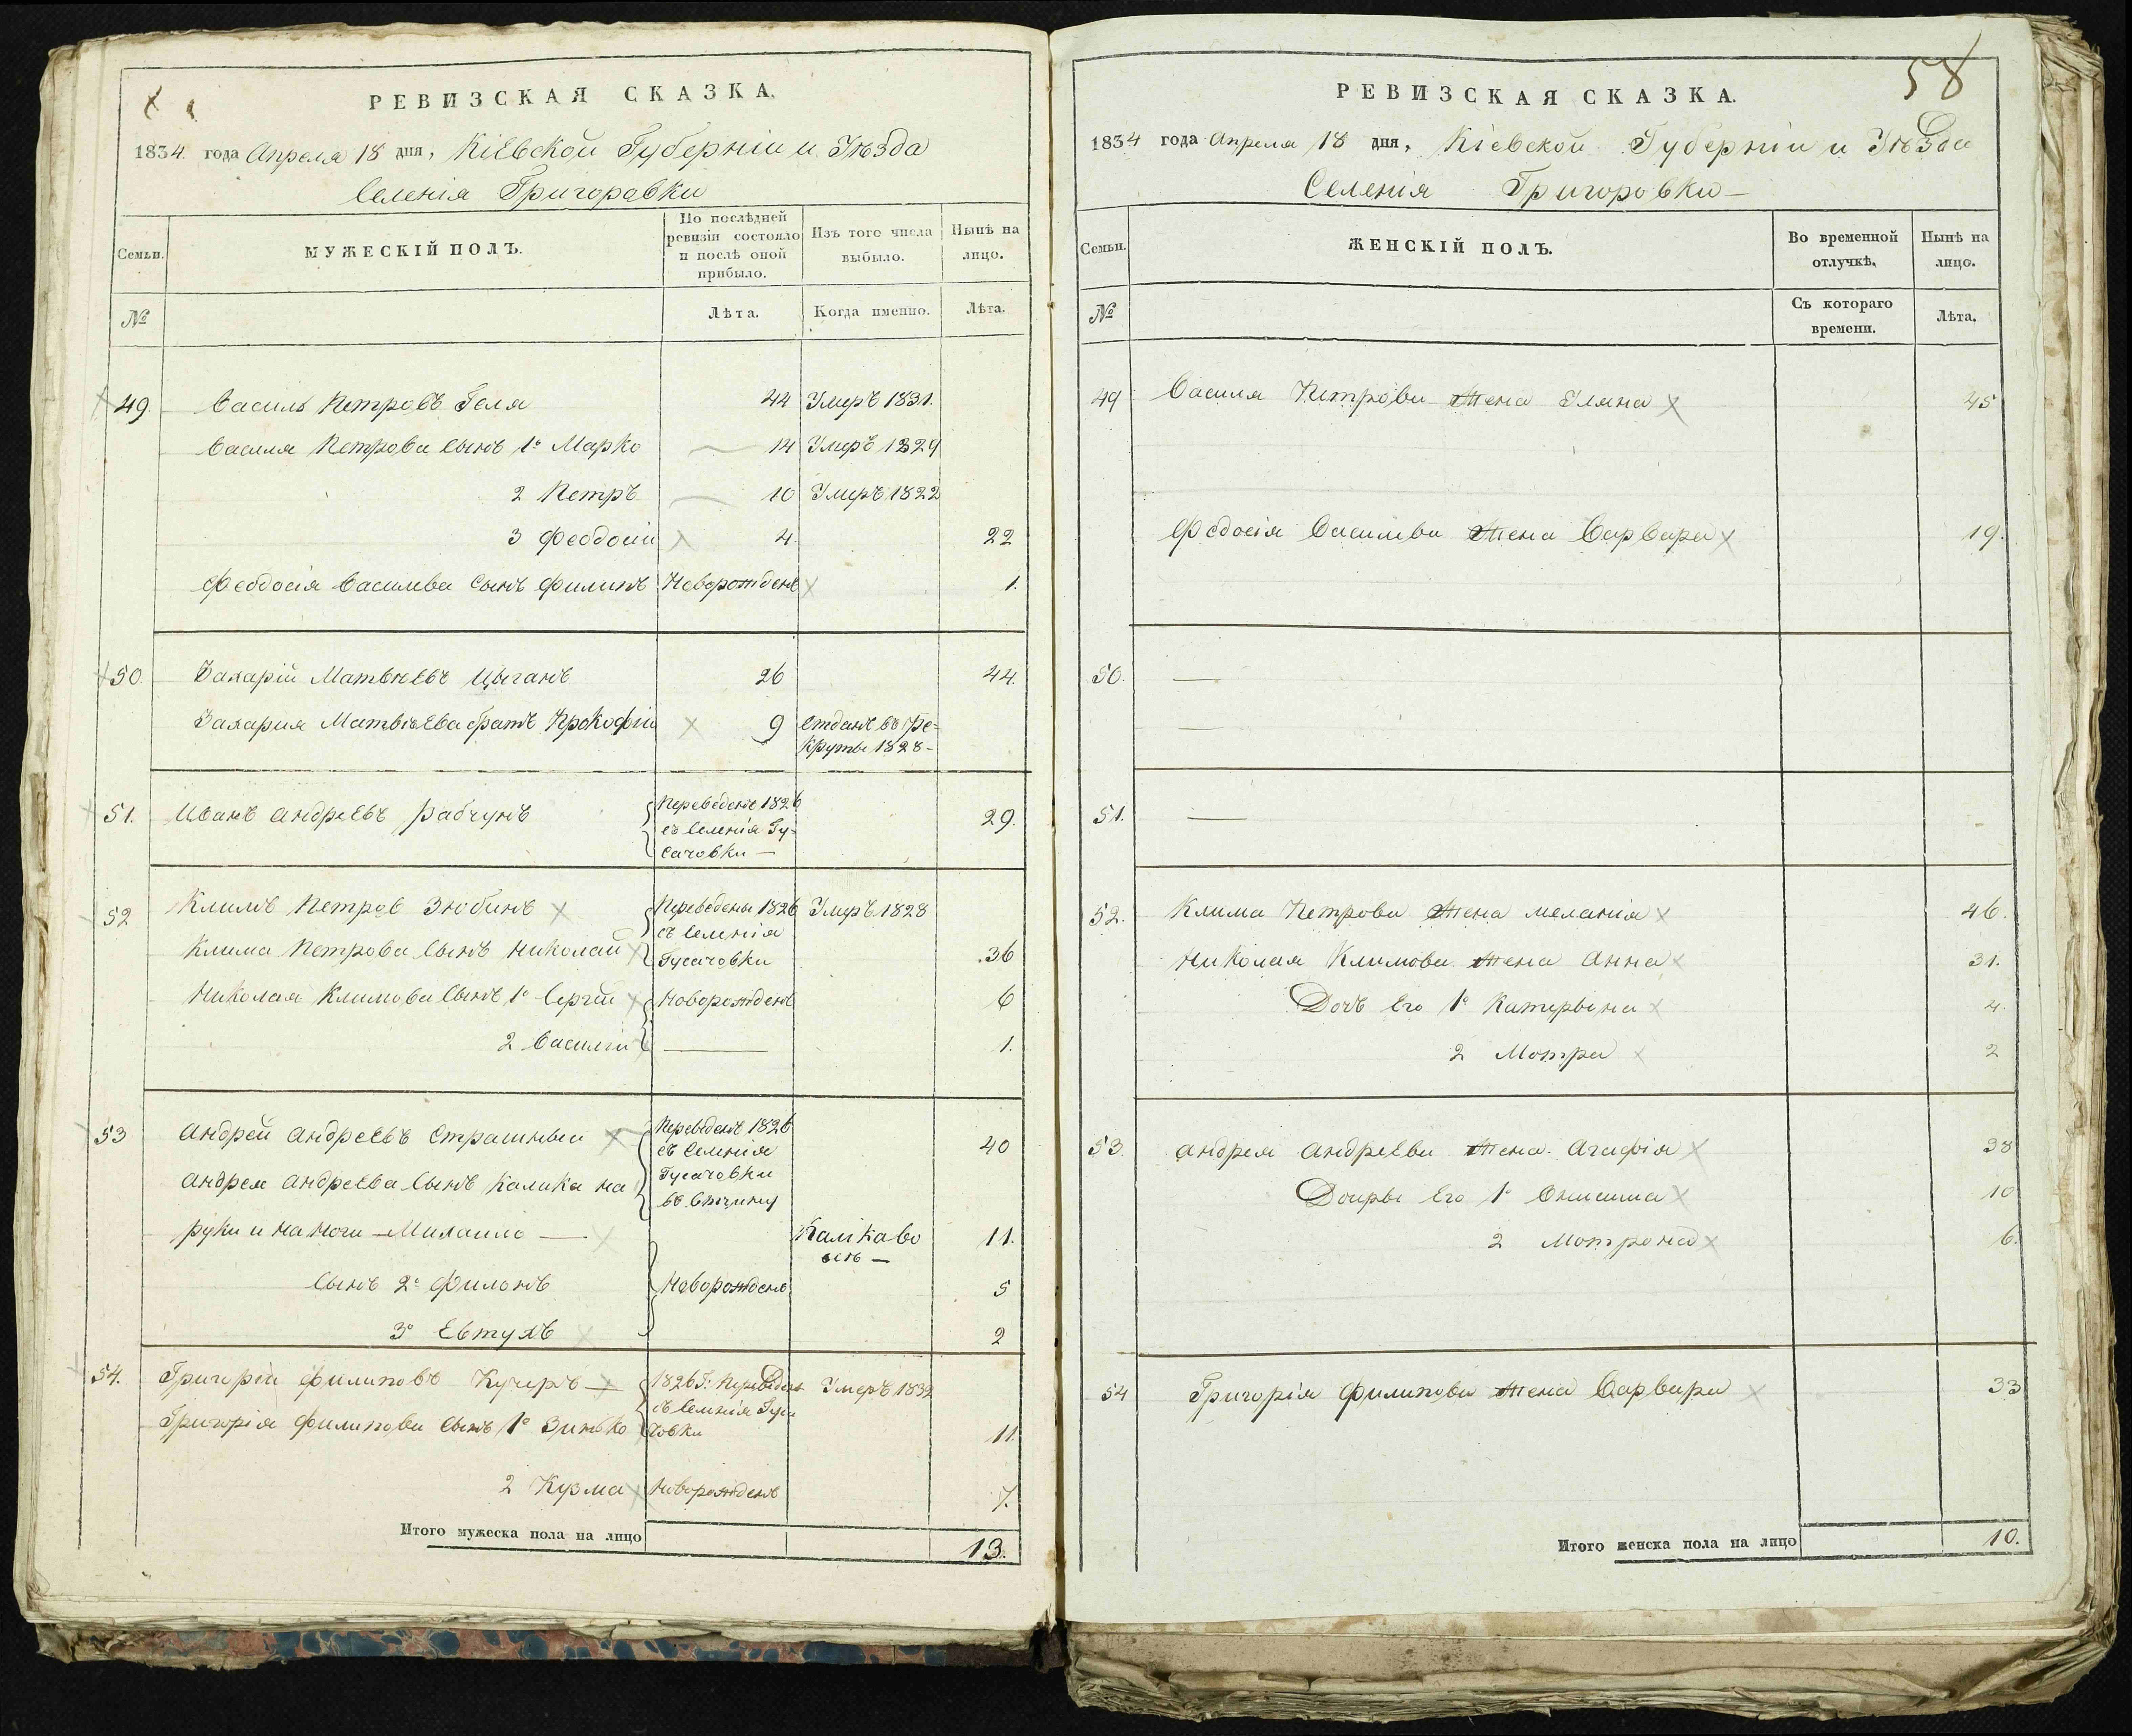 РЕВИЗСКАЯ СКАЗКА.
1834. года Апреля 18 дня, Кіевской Губерніи и Уѣзда
Селенія Григоровки
Семьи.
МУЖЕСКІЙ ПОЛЪ.
По послѣдней ревизіи состояло и послѣ оной прибыло.
Изъ того числа выбыло.
Нынѣ на лицо.
№
Лѣта.
Когда именно.
Лѣта.
49. Василь Петровъ Геля 44 Умеръ 1831.
Василя Петрова сынъ 1º Марко 14 Умеръ 1829
2 Петръ 10 Умеръ 1822
3 Феодосій 4. 22
Феодосія Василева сынъ Филипъ Новорожденъ 1.
50. Захарій Матвѣевъ Цыганъ 26 44.
Захария Матвѣева братъ Прокофій 9 Отданъ въ ре=
круты 1828-
51. Иванъ Андреевъ Рабчунъ Переведенъ 1826 29.
съ Селенія Гу-
сачовки
52 Климъ Петров Зюбинъ Переведены 1826 Умеръ 1828
съ Селенія
Клима Петрова сынъ Николай Гусачовки 36
Николая Климова сынъ 1º Сергій Новорожденъ 6
2 Василій 1.
53 Андрей Андреевъ Страшный Переведенъ 1826 40
съ Селенія
Гусачовки
Андрея Андреева сынъ Калика на
руки и на ноги Михаило Каликаво 11.
сынъ 2º Филонъ Новорожденъ 5
3º Евтухъ 2
54. Григорій Филиповъ Кучеръ 1826 Г: Переведенъ Умеръ 1832
съ Селенія Гуса
Григорія Филипова сынъ 1º Зинько човки 11.
2 Кузма Новорожденъ 7.
Итого мужеска пола на лицо 13.
58
РЕВИЗСКАЯ СКАЗКА.
1834 года Апреля 18 дня, Кіевской Губерніи и Уѣзда
Селенія Григоровки
Семьи.
ЖЕНСКІЙ ПОЛЪ.
Во временной отлучкѣ.
Нынѣ на лицо.
№
Съ котораго времени.
Лѣта.
49 Василя Петрова Жена Уляна 45
Федосія Василева Жена Варвара 19.
50.
51.
52. Клима Петрова Жена Меланія 46.
Николая Климова Жена Анна 31.
Дочь Его 1º Катерына 4.
2 Мотря 2
53. Андрея Андреева Жена Агафія 38
Дочры Его 1º Онисима 10
2 Мотрона 6.
54 Григорія Филипова Жена Варвара 33
Итого женска пола на лицо 10.